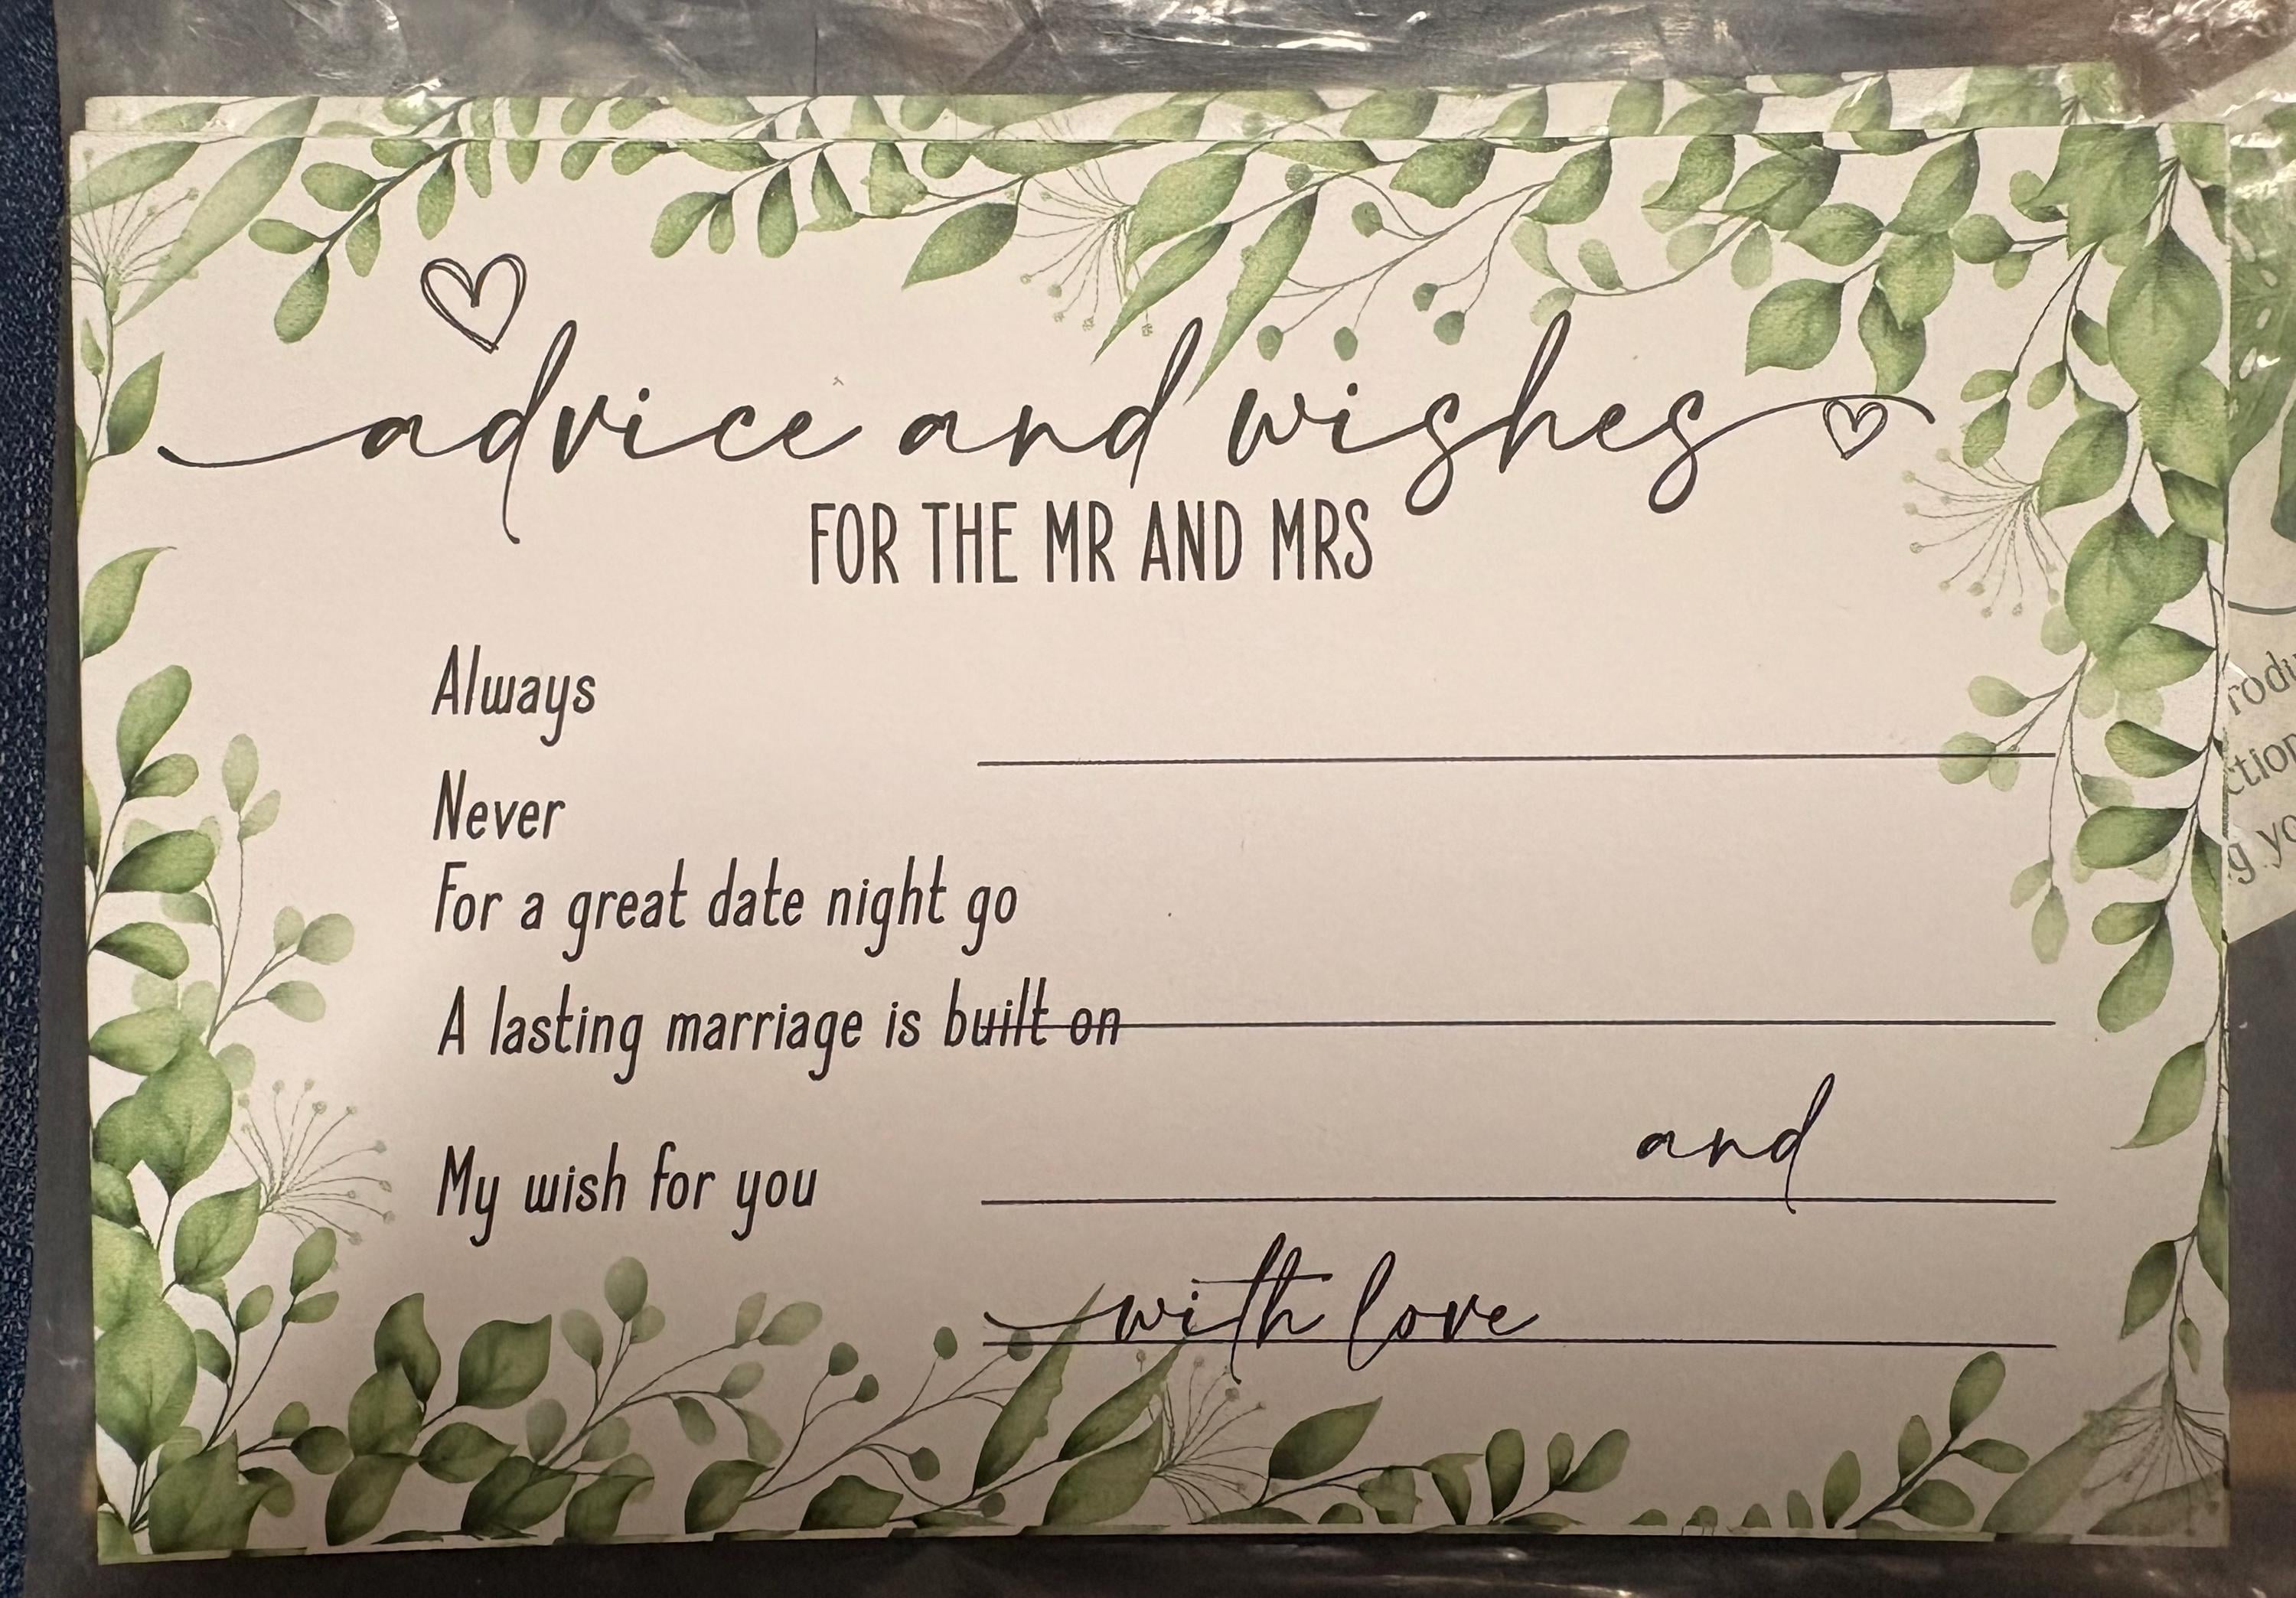 advice and wishes
FOR THE MR AND MRS
Always
Never
For a great date night go
A lasting marriage is built on
and
My wish for you
with love